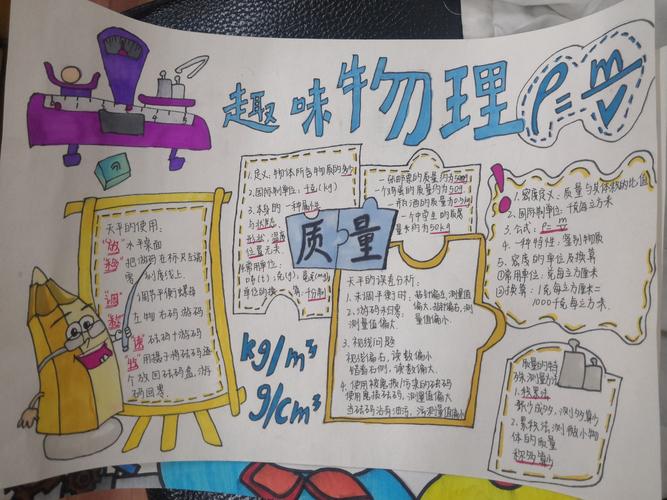 趣味物理
ρ=m/v
天平的使用:
"放" 水平桌面
把游码在标尺左端
零刻度线上.
"调" 调节平衡螺母
左物右码 游码
砝码+游码
"收" 用镊子将砝码逐
个放回砝码盒,游
码回零.
1.定义:物体所含物质的多少
2.国际制单位:千克(kg)
3.本身的一种属性
与状态,
形状,温度
位置无关.
4.常用单位:
吨(t),克(g),毫克(mg)
单位的换算:千分制
质量
一张邮票的质量约为50mg
一个鸡蛋的质量约为50g
一瓶白酒的质量为0.5kg
一个中学生的质
量大约为50kg
天平的误差分析:
1.未调平衡时,指针偏左,测量值
偏大.指针偏右,测
2.游码未归零,量值偏小.
测量值偏大.
3.视线问题
视线偏右,读数偏小
视线偏左,读数偏大.
4.使用被磨损/污染的砝码
使用磨损砝码,测量值偏大
当砝码沾有油污,污测量值偏小
kg/m³
g/cm³
1.密度定义:质量与其体积的比值
2.国际制单位:千克每立方米
3.公式:ρ=m/v
4.一种特性:鉴别物质
5.密度的单位及换算
①常用单位:克每立方厘米
②换算:1克每立方厘米=
1000千克每立方米.
质量的特
殊测量方法
1.积累法
聚少成多,测多算少
2.累积法,测微小物
体的质量
测多算少